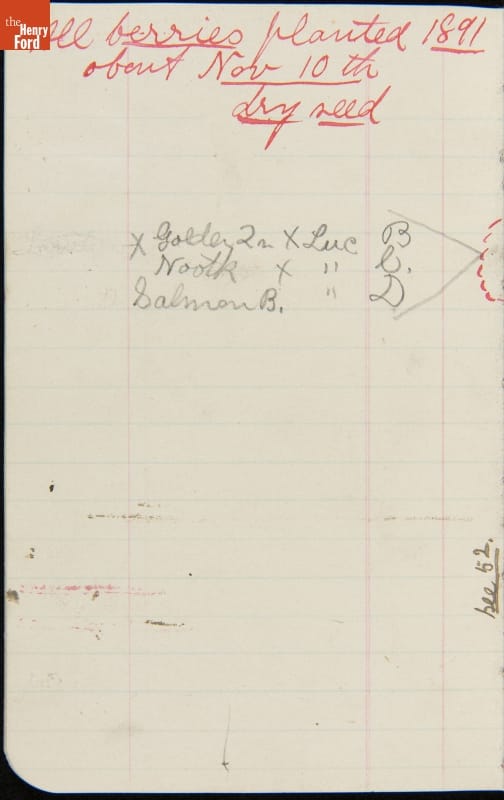 the
Henry
Ford
All berries planted 1891
about Nov 10 th
dry seed
X Golden Qn X Luc B
Nootk X " C.
Salmon B. " D
see 52.